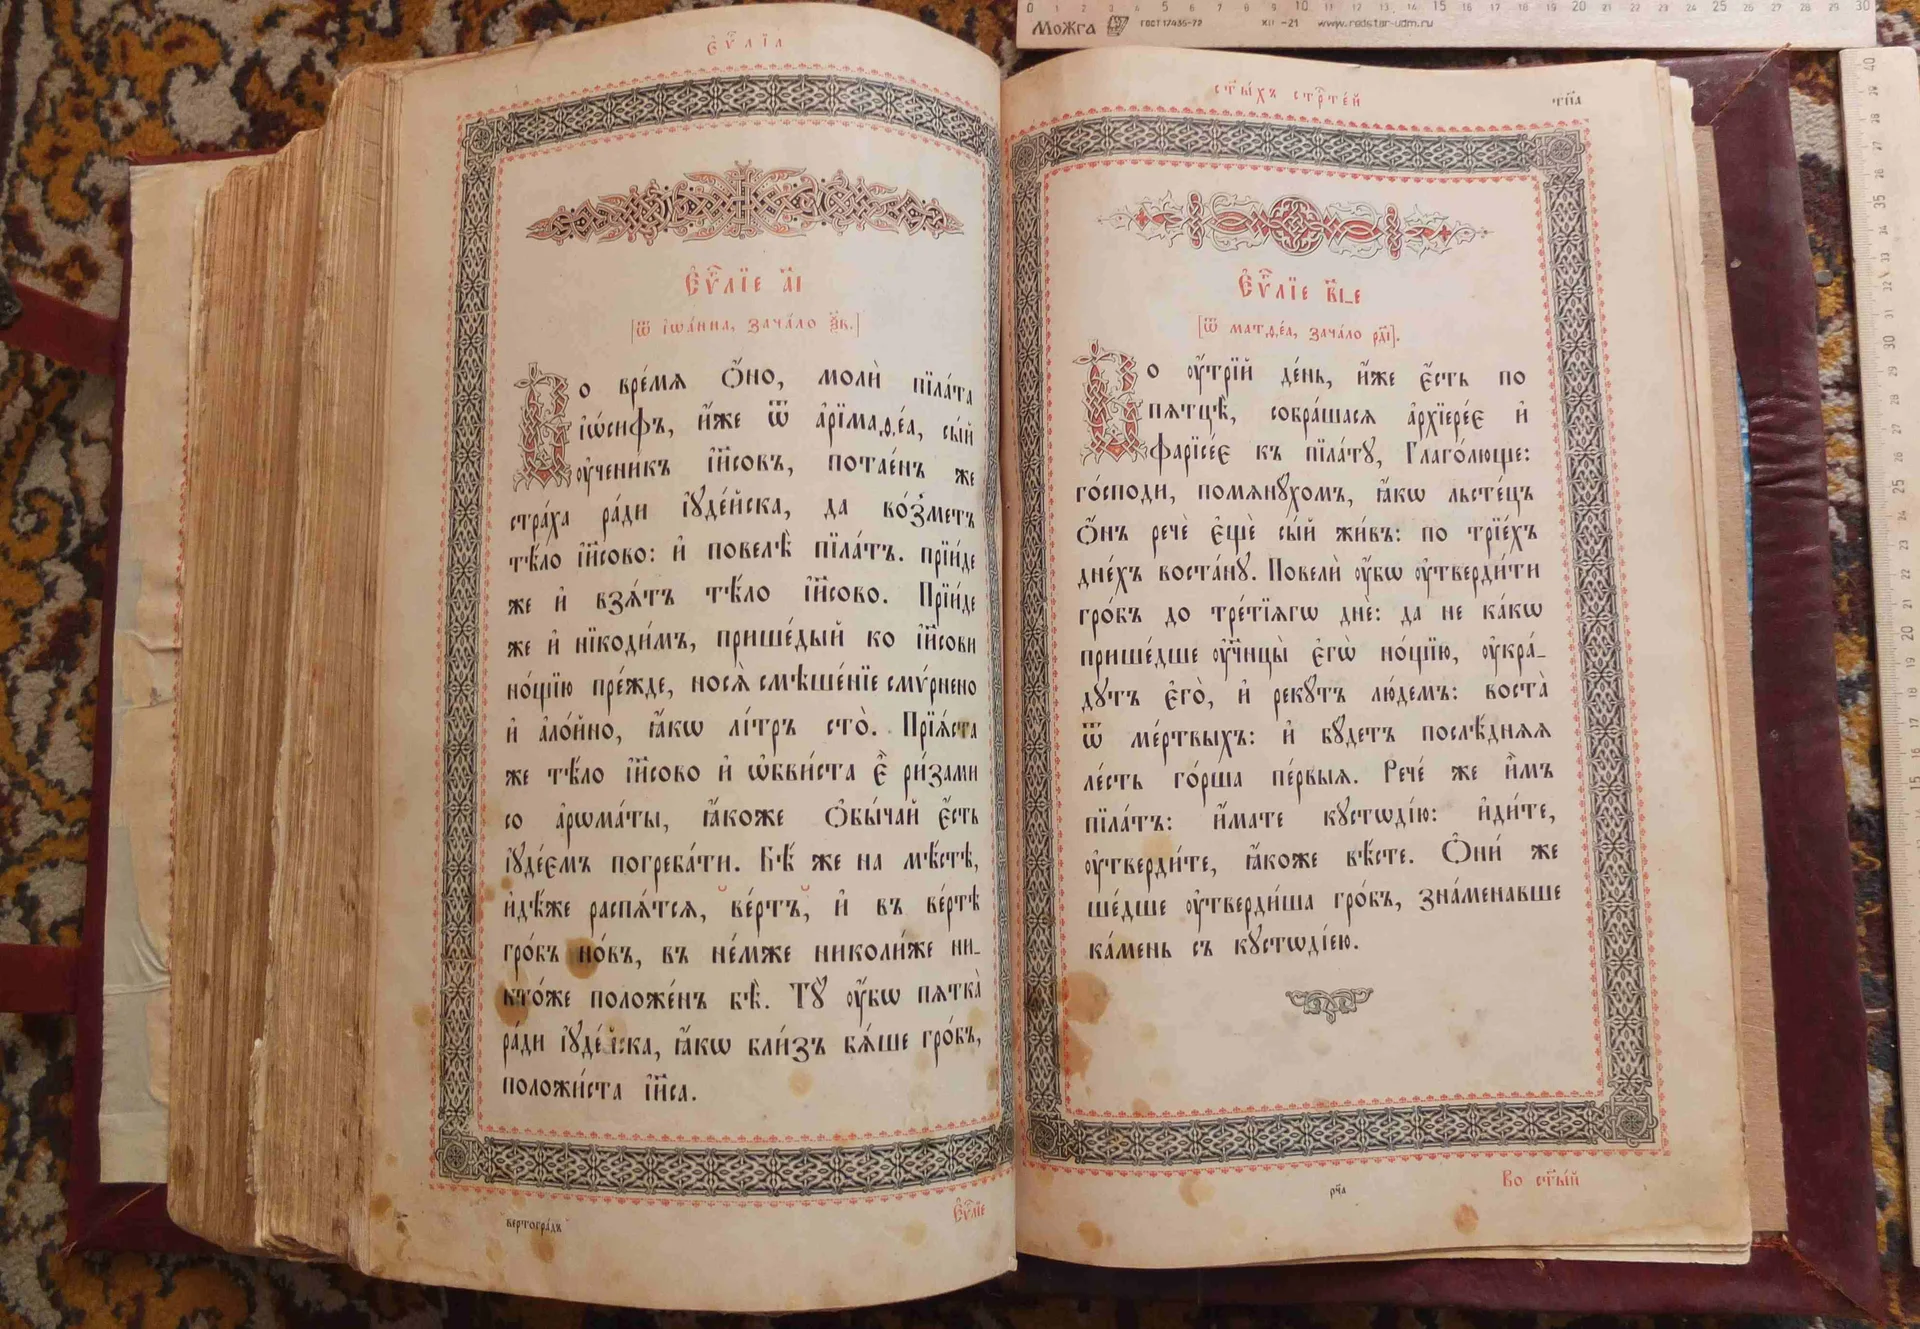 Е҆ѵⷢ҇лїѧ
Е҆ѵⷢ҇лїе а҃і
[ѿ і҆ѡа́нна, зача́ло ѯ҃в.]
Во вре́мѧ ѻ҆́но, молѝ пїла́та
і҆ѡ́сифъ, и҆́же ѿ а҆рїмаѳе́а, сы́й
ᲂу҆чени́къ і҆и҃совъ, потае́нъ же
стра́ха ра́ди і҆ꙋде́йска, да во́зметъ
тѣ́ло і҆и҃сово: и҆ повелѣ̀ пїла́тъ. прїи́де
же и҆ взѧ́тъ тѣ́ло і҆и҃сово. Прїи́де
же и҆ нїкоди́мъ, прише́дый ко і҆и҃сови
но́щїю пре́жде, носѧ̀ смѣше́нїе смѵ́рнено
и҆ а҆ло́йно, ꙗ҆́кѡ лі́тръ сто̀. Прїѧ́ста
же тѣ́ло і҆и҃сово и҆ ѡ҆бви́ста є҆̀ ри́зами
со а҆рѡма́ты, ꙗ҆́коже ѻ҆бы́чай є҆́сть
і҆ꙋде́ємъ погреба́ти. Бѣ́ же на мѣ́стѣ,
и҆дѣ́же распѧ́тсѧ, ве́ртъ, и҆ въ ве́ртѣ
гро́бъ но́въ, въ не́мже николи́же ни-
кто́же положе́нъ бѣ̀. Тꙋ̀ ᲂу҆́бѡ пѧтка̀
ра́ди і҆ꙋде́йска, ꙗ҆́кѡ бли́зъ бѧ́ше гро́бъ,
положи́ста і҆и҃са.
вертогра́дъ
Е҆ѵⷢ҇лїе
ст҃ы́хъ стрⷭ҇те́й
тп҃а
Е҆ѵⷢ҇лїе в҃і-е
[ѿ матѳе́а, зача́ло рд҃і].
Во ᲂу҆́трїй де́нь, и҆́же є҆́сть по
пѧтцѣ̀, собра́шасѧ а҆рхїере́є и҆
фарїсе́є къ пїла́тꙋ, Глаго́люще:
го́споди, помѧнꙋ́хомъ, ꙗ҆́кѡ льсте́цъ
ѻ҆́нъ речѐ є҆щѐ сы́й жи́въ: по трїе́хъ
дне́хъ воста́нꙋ. Повелѝ ᲂу҆́бѡ ᲂу҆тверди́ти
гро́бъ до тре́тїѧгѡ днѐ: да не ка́кѡ
прише́дше ᲂу҆чн҃цы̀ є҆гѡ̀ но́щїю, ᲂу҆кра́-
дꙋтъ є҆го̀, и҆ рекꙋ́тъ лю́демъ: воста̀
ѿ ме́ртвыхъ: и҆ бꙋ́детъ послѣ́днѧѧ
ле́сть го́рша пе́рвыѧ. Рече́ же и҆̀мъ
пїла́тъ: и҆́мате кꙋстѡді́ю: и҆ди́те,
ᲂу҆тверди́те, ꙗ҆́коже вѣ́сте. Ѻ҆ни́ же
ше́дше ᲂу҆тверди́ша гро́бъ, зна́менавше
ка́мень съ кꙋстѡді́ею.
рч҃а
Во ст҃ы́й
Можга ГОСТ 17435-72 XII -21 www.redstar-udm.ru